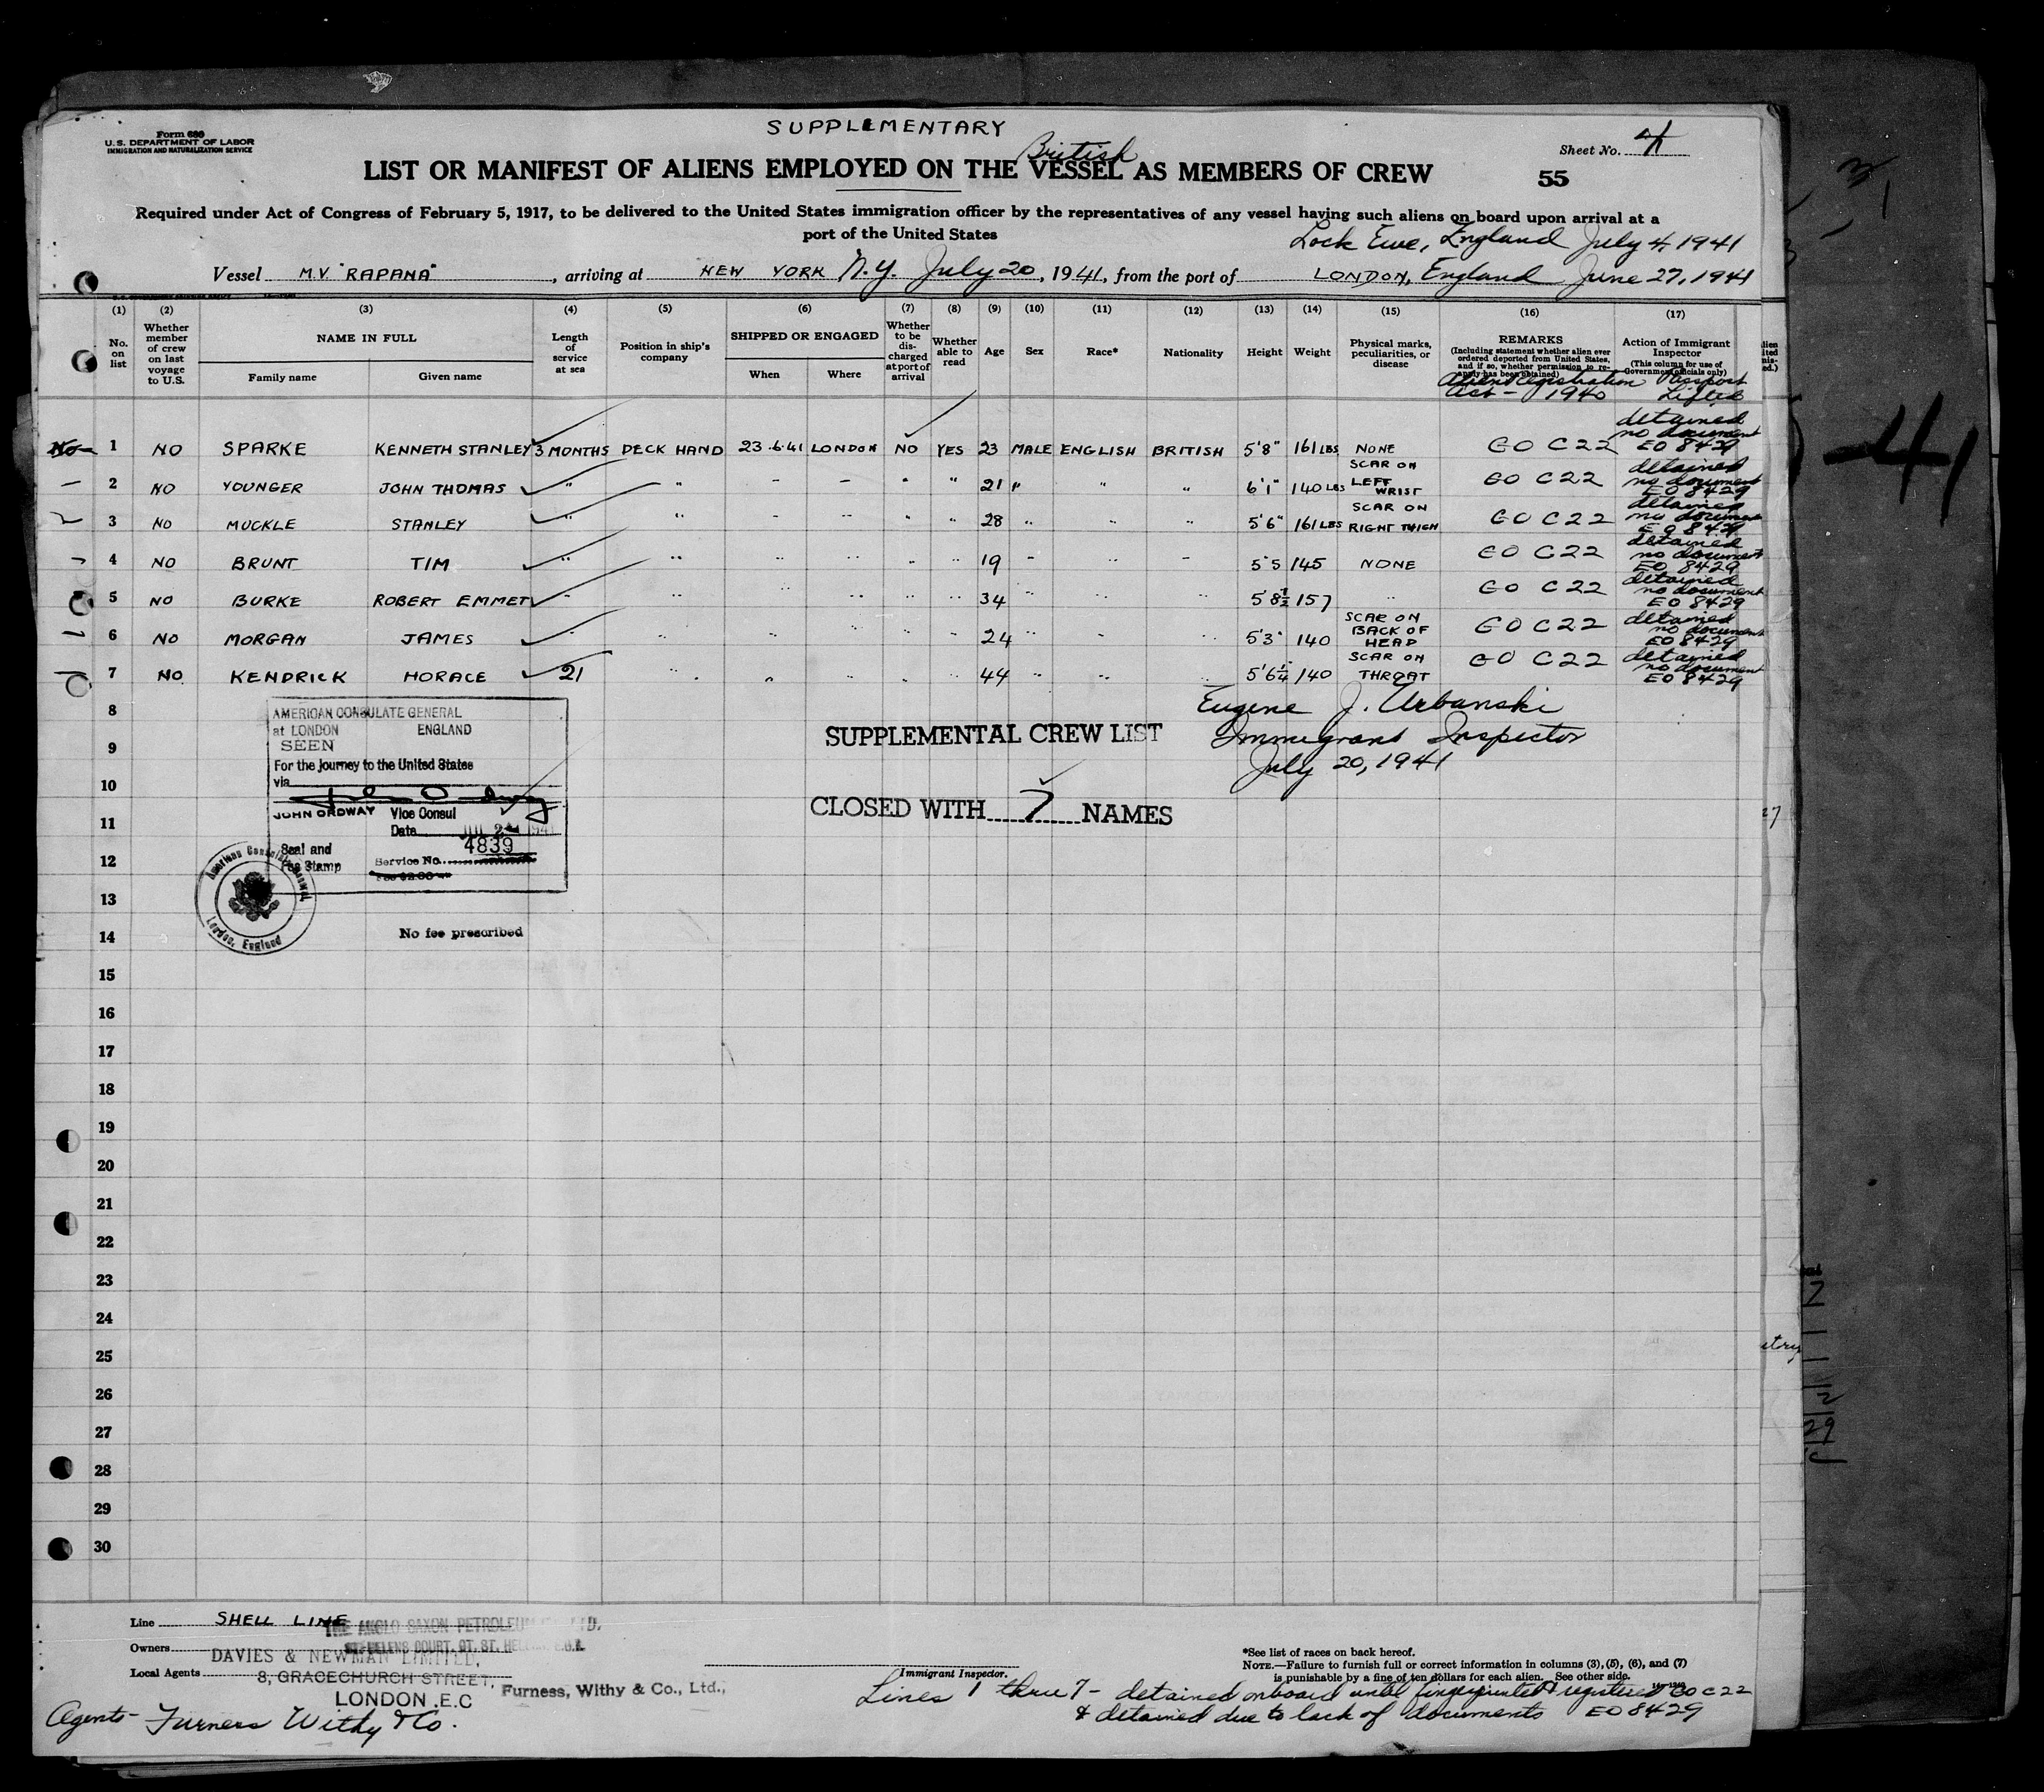 Form 680
U.S. DEPARTMENT OF LABOR
IMMIGRATION AND NATURALIZATION SERVICE
SUPPLEMENTARY
British
Sheet No. 4
LIST OR MANIFEST OF ALIENS EMPLOYED ON THE VESSEL AS MEMBERS OF CREW
55
Required under Act of Congress of February 5, 1917, to be delivered to the United States immigration officer by the representatives of any vessel having such aliens on board upon arrival at a
port of the United States
Lock Ewe, England July 4, 1941
Vessel M.V. "RAPANA", arriving at NEW YORK N.Y. July 20, 1941, from the port of LONDON, England June 27, 1941
(1) (2) (3) (4) (5) (6) (7) (8) (9) (10) (11) (12) (13) (14) (15) (16) (17)
No. on list
Whether member of crew on last voyage to U.S.
NAME IN FULL
Family name
Given name
Length of service at sea
Position in ship's company
SHIPPED OR ENGAGED
When
Where
Whether to be discharged at port of arrival
Whether able to read
Age
Sex
Race*
Nationality
Height
Weight
Physical marks, peculiarities, or disease
REMARKS
(Including statement whether alien ever ordered deported from United States, and if so, whether permission to reapply has been obtained)
Alien Registration Act - 1940
Action of Immigrant Inspector
(This column for use of Government officials only)
Passport Lifted
No 1 NO SPARKE KENNETH STANLEY 3 MONTHS DECK HAND 23.6.41 LONDON NO YES 23 MALE ENGLISH BRITISH 5'8" 161 LBS NONE GO C22 detained no document EO 8429
2 NO YOUNGER JOHN THOMAS " " - - " " 21 " " " 6'1" 140 LBS SCAR ON LEFT WRIST GO C22 detained no document EO 8429
3 NO MUCKLE STANLEY " " " " " " 28 " " " 5'6" 161 LBS SCAR ON RIGHT THIGH GO C22 detained no document EO 8429
4 NO BRUNT TIM " " " " " " 19 " " " 5'5 145 NONE GO C22 detained no document EO 8429
5 NO BURKE ROBERT EMMET " " " " " " 34 " " " 5'8½ 157 " GO C22 detained no document EO 8429
6 NO MORGAN JAMES " " " " " " 24 " " " 5'3" 140 SCAR ON BACK OF HEAD GO C22 detained no document EO 8429
7 NO KENDRICK HORACE 21 " " " " " 44 " " " 5'6¼ 140 SCAR ON THROAT GO C22 detained no document EO 8429
8
9
10
11
12
13
14
15
16
17
18
19
20
21
22
23
24
25
26
27
28
29
30
AMERICAN CONSULATE GENERAL
at LONDON ENGLAND
SEEN
For the journey to the United States
via
JOHN ORDWAY Vice Consul
Date
4839
Seal and Fee Stamp
Service No.
American Consulate General
London, England
No fee prescribed
SUPPLEMENTAL CREW LIST
CLOSED WITH 7 NAMES
Eugene J. Urbanski
Immigrant Inspector
July 20, 1941
Line SHELL LINE
THE ANGLO SAXON PETROLEUM
Owners
ST. HELENS COURT, GT. ST. HELENS
DAVIES & NEWMAN LIMITED,
Local Agents
8, GRACECHURCH STREET,
LONDON, E.C
Furness, Withy & Co., Ltd.,
Agents - Furness Withy & Co.
Immigrant Inspector.
*See list of races on back hereof.
NOTE.—Failure to furnish full or correct information in columns (3), (5), (6), and (7)
is punishable by a fine of ten dollars for each alien. See other side.
Lines 1 thru 7 - detained onboard until fingerprinted & registered GO C22
& detained due to lack of documents EO 8429
-41